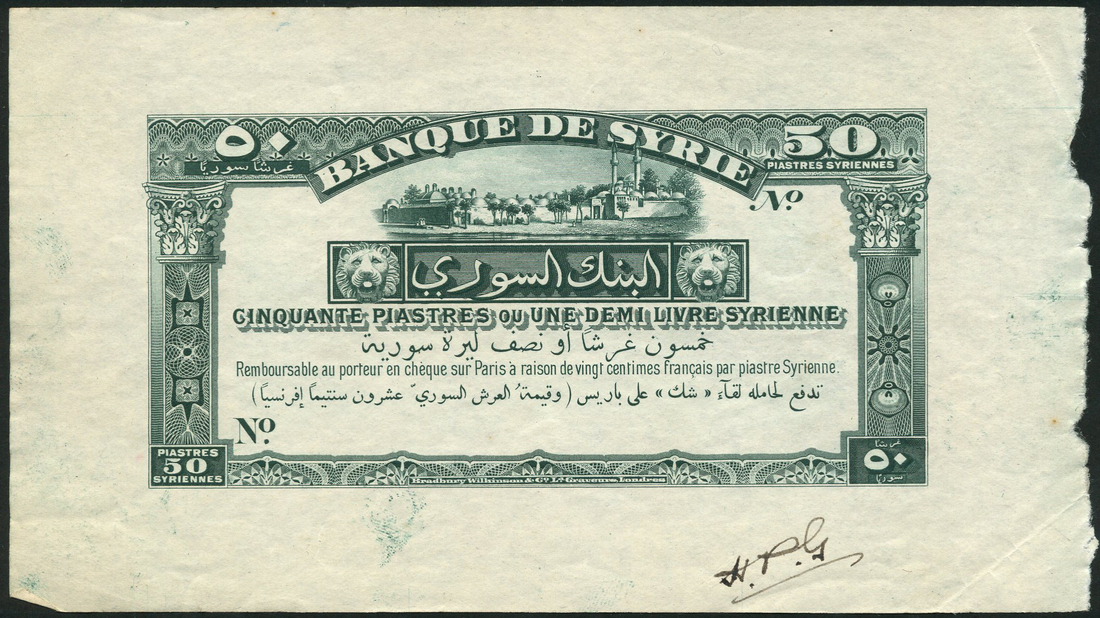 ٥٠
غرشا سوريا
BANQUE DE SYRIE
50
PIASTRES SYRIENNES
Nº.
البنك السوري
CINQUANTE PIASTRES OU UNE DEMI LIVRE SYRIENNE
خمسون غرشاً أو نصف ليرة سورية
Remboursable au porteur en chèque sur Paris à raison de vingt centimes français par piastre Syrienne.
تدفع لحامله لقآء « شك » على باريس ( وقيمة العرش السوريّ عشرون سنتيماً إفرنسياً )
Nº.
PIASTRES
50
SYRIENNES
غرشا
٥٠
سوريا
Bradbury Wilkinson & Cº. Lᵈ. Graveurs, Londres
H.P.G